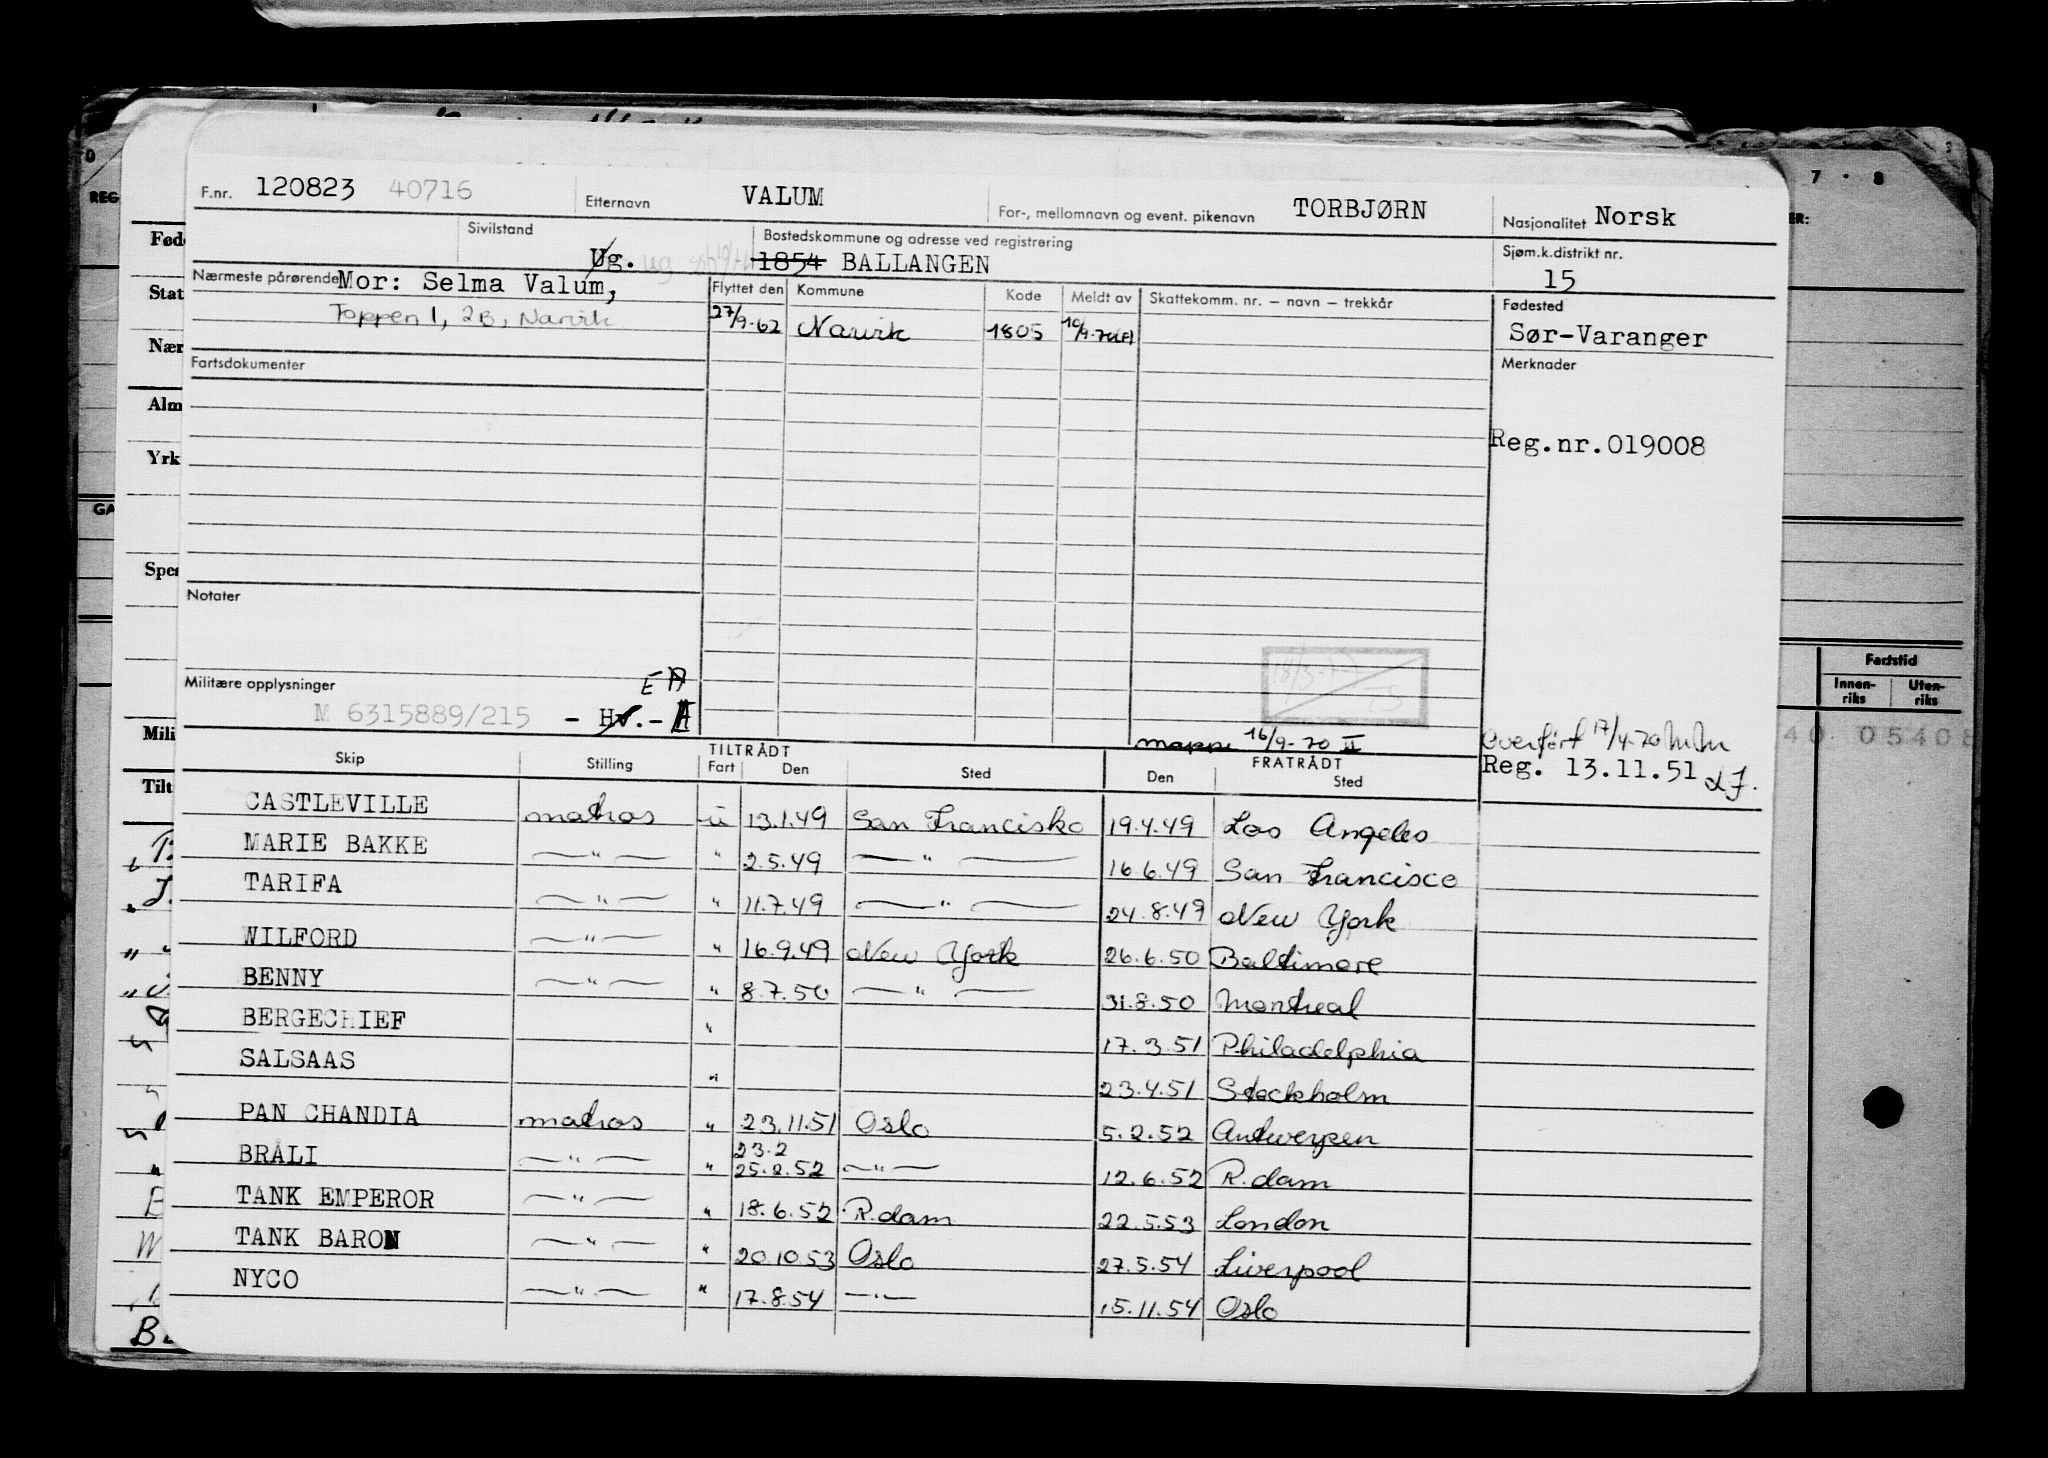 F.nr. 120823 40716 Etternavn VALUM For-, mellomnavn og event. pikenavn TORBJØRN Nasjonalitet Norsk
Sivilstand Ug. ug Bostedskommune og adresse ved registrering 1854 BALLANGEN Sjøm.k.distrikt nr. 15
Nærmeste pårørende Mor: Selma Valum, Flyttet den Kommune Kode Meldt av Skattekomm. nr. – navn – trekkår Fødested
Toppen 1, 2B, Narvik 27/9-62 Narvik 1805 Sør-Varanger
Fartsdokumenter Merknader
Reg.nr.019008
Notater
Militære opplysninger EA
M 6315889/215 - Hv.-
mappe 16/9-70 II Overført 17/4-70
Reg. 13.11.51
Skip Stilling TILTRÅDT Fart Den Sted FRATRÅDT Den Sted
CASTLEVILLE matros u 13.1.49 San Francisko 19.4.49 Los Angeles
MARIE BAKKE — " — " 2.5.49 — " — 16.6.49 San Francisco
TARIFA — " — " 11.7.49 — " — 24.8.49 New York
WILFORD — " — " 16.9.49 New York 26.6.50 Baltimore
BENNY — " — " 8.7.50 — " — 31.8.50 Montreal
BERGECHIEF " 17.3.51 Philadelphia
SALSAAS " 23.4.51 Stockholm
PAN CHANDIA matros " 23.11.51 Oslo 5.2.52 Antwerpen
BRÅLI — " — " 23.2 25.2.52 — " — 12.6.52 R.dam
TANK EMPEROR — " — " 18.6.52 R.dam 22.5.53 London
TANK BARON — " — " 20.10.53 Oslo 27.5.54 Liverpool
NYCO — " — " 17.8.54 — " — 15.11.54 Oslo
REG
Fød
Stat
Nær
Alm
Yrk
GA
Spes
Mili
Tilt
7 . 8
ER:
Fartstid
Innen-riks Uten-riks
40 05408